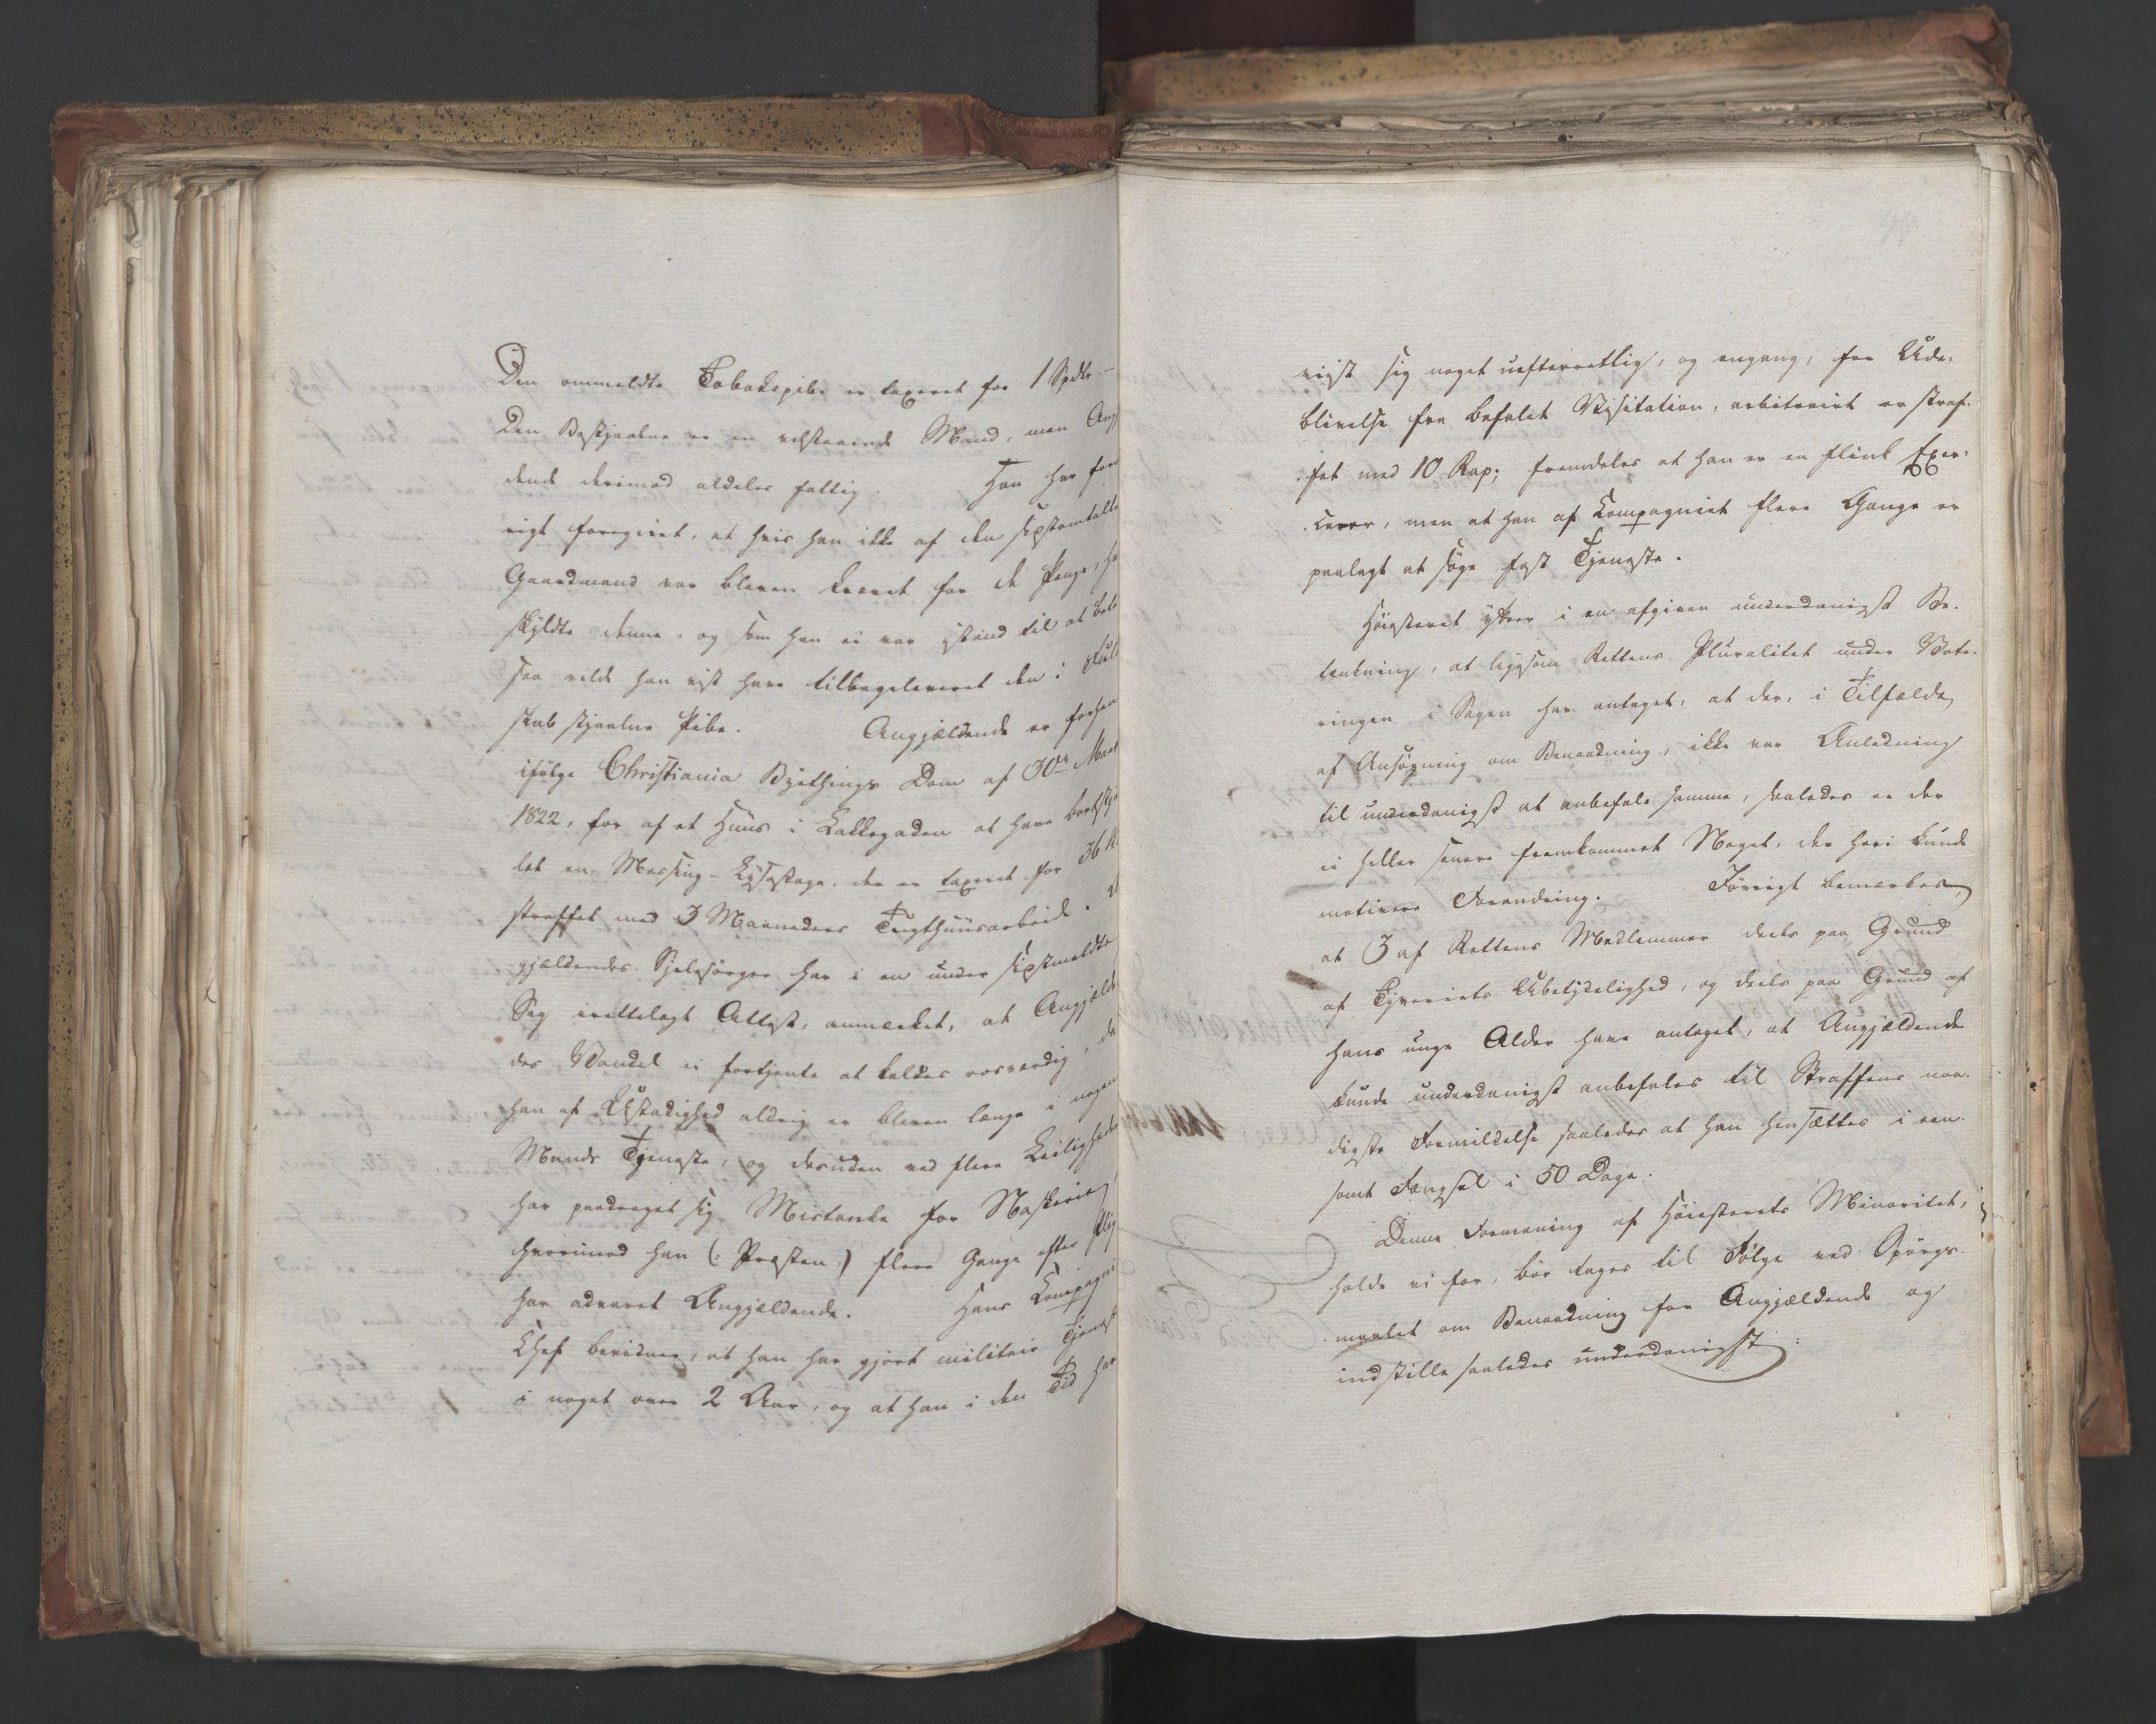 Den ommeldte Tobakspibe er taxeret for 1 Spdlr.
Den Bestjaalne er en velstaaende Mand, men Ang
dende derimod aldeles fattig. Han har for
rigt foregivet, at hvis han ikke af den sidstomtalte
Gaardmand var bleven krævet for de Penge, ha
skyldte denne, og som han ei var istand til at beta
saa vilde han vist have tilbageleveret den i Fuld
skab stjaalne Pibe. Angjældende er forhen
ifølge Christiania Byethings Dom af 30te Marts
1822, for af et Huus i Lakkegaden at have bortstjaa
let en Messing-Lysestage, der er taxeret for 36 
straffet med 3 Maaneders Tugthuusarbeide.
gjældendes Sjelesørger har i en under sidstmeldte
Sag irettelagt Attest, anmærket, at Angjælde
des Vandel ei fortjente at kaldes rosværdig, da
han af Ustadighed aldrig er bleven længe i nogen
Mands Tjeneste, og desuden ved flere Leiligheder
har paadraget sig Mistanke for Naskerie,
hvorimod han (: Præsten :) flere Gange efter Plig
har advaret Angjældende. Hans Kompagni
Chef bevidner, at han har gjort militair Tjenest
i noget over 2 Aar, og at han i den Tid har
viist sig noget uefterrettlig, og engang, for Ude-
blivelse fra befalet Visitation, arbitrairt er straf-
fet med 10 Rap; fremdeles at han er en flink Exer-
cerer, men at han af Kompagniet flere Gange er
paalagt at søge fast Tjeneste.
Høiesteret yttrer i en afgiven underdanigst Be-
tænkning, at ligesom Rettens Pluralitet under Vote-
ringen i Sagen har antaget, at der, i Tilfælde
af Ansøgning om Benaadning, ikke var Anledning
til underdanigst at anbefale samme, saaledes er der
ei heller senere fremkommet Noget, der heri kunde
motivere Forandring. Iøvrigt bemærkes,
at 3 af Rettens Medlemmer deels paa Grund
af Tyveriets Ubetydelighed, og deels paa Grund af
hans unge Alder have antaget, at Angjældende
kunde underdanigst anbefales til Straffens naa-
digste Formildelse saaledes at han hensættes i een-
somt Fængsel i 50 Dage.
Denne Formening af Høiesterets Minoritet,
holde vi for, bør tages til Følge ved Spørgs-
maalet om Benaadning for Angjældende og
indstille saaledes underdanigst: